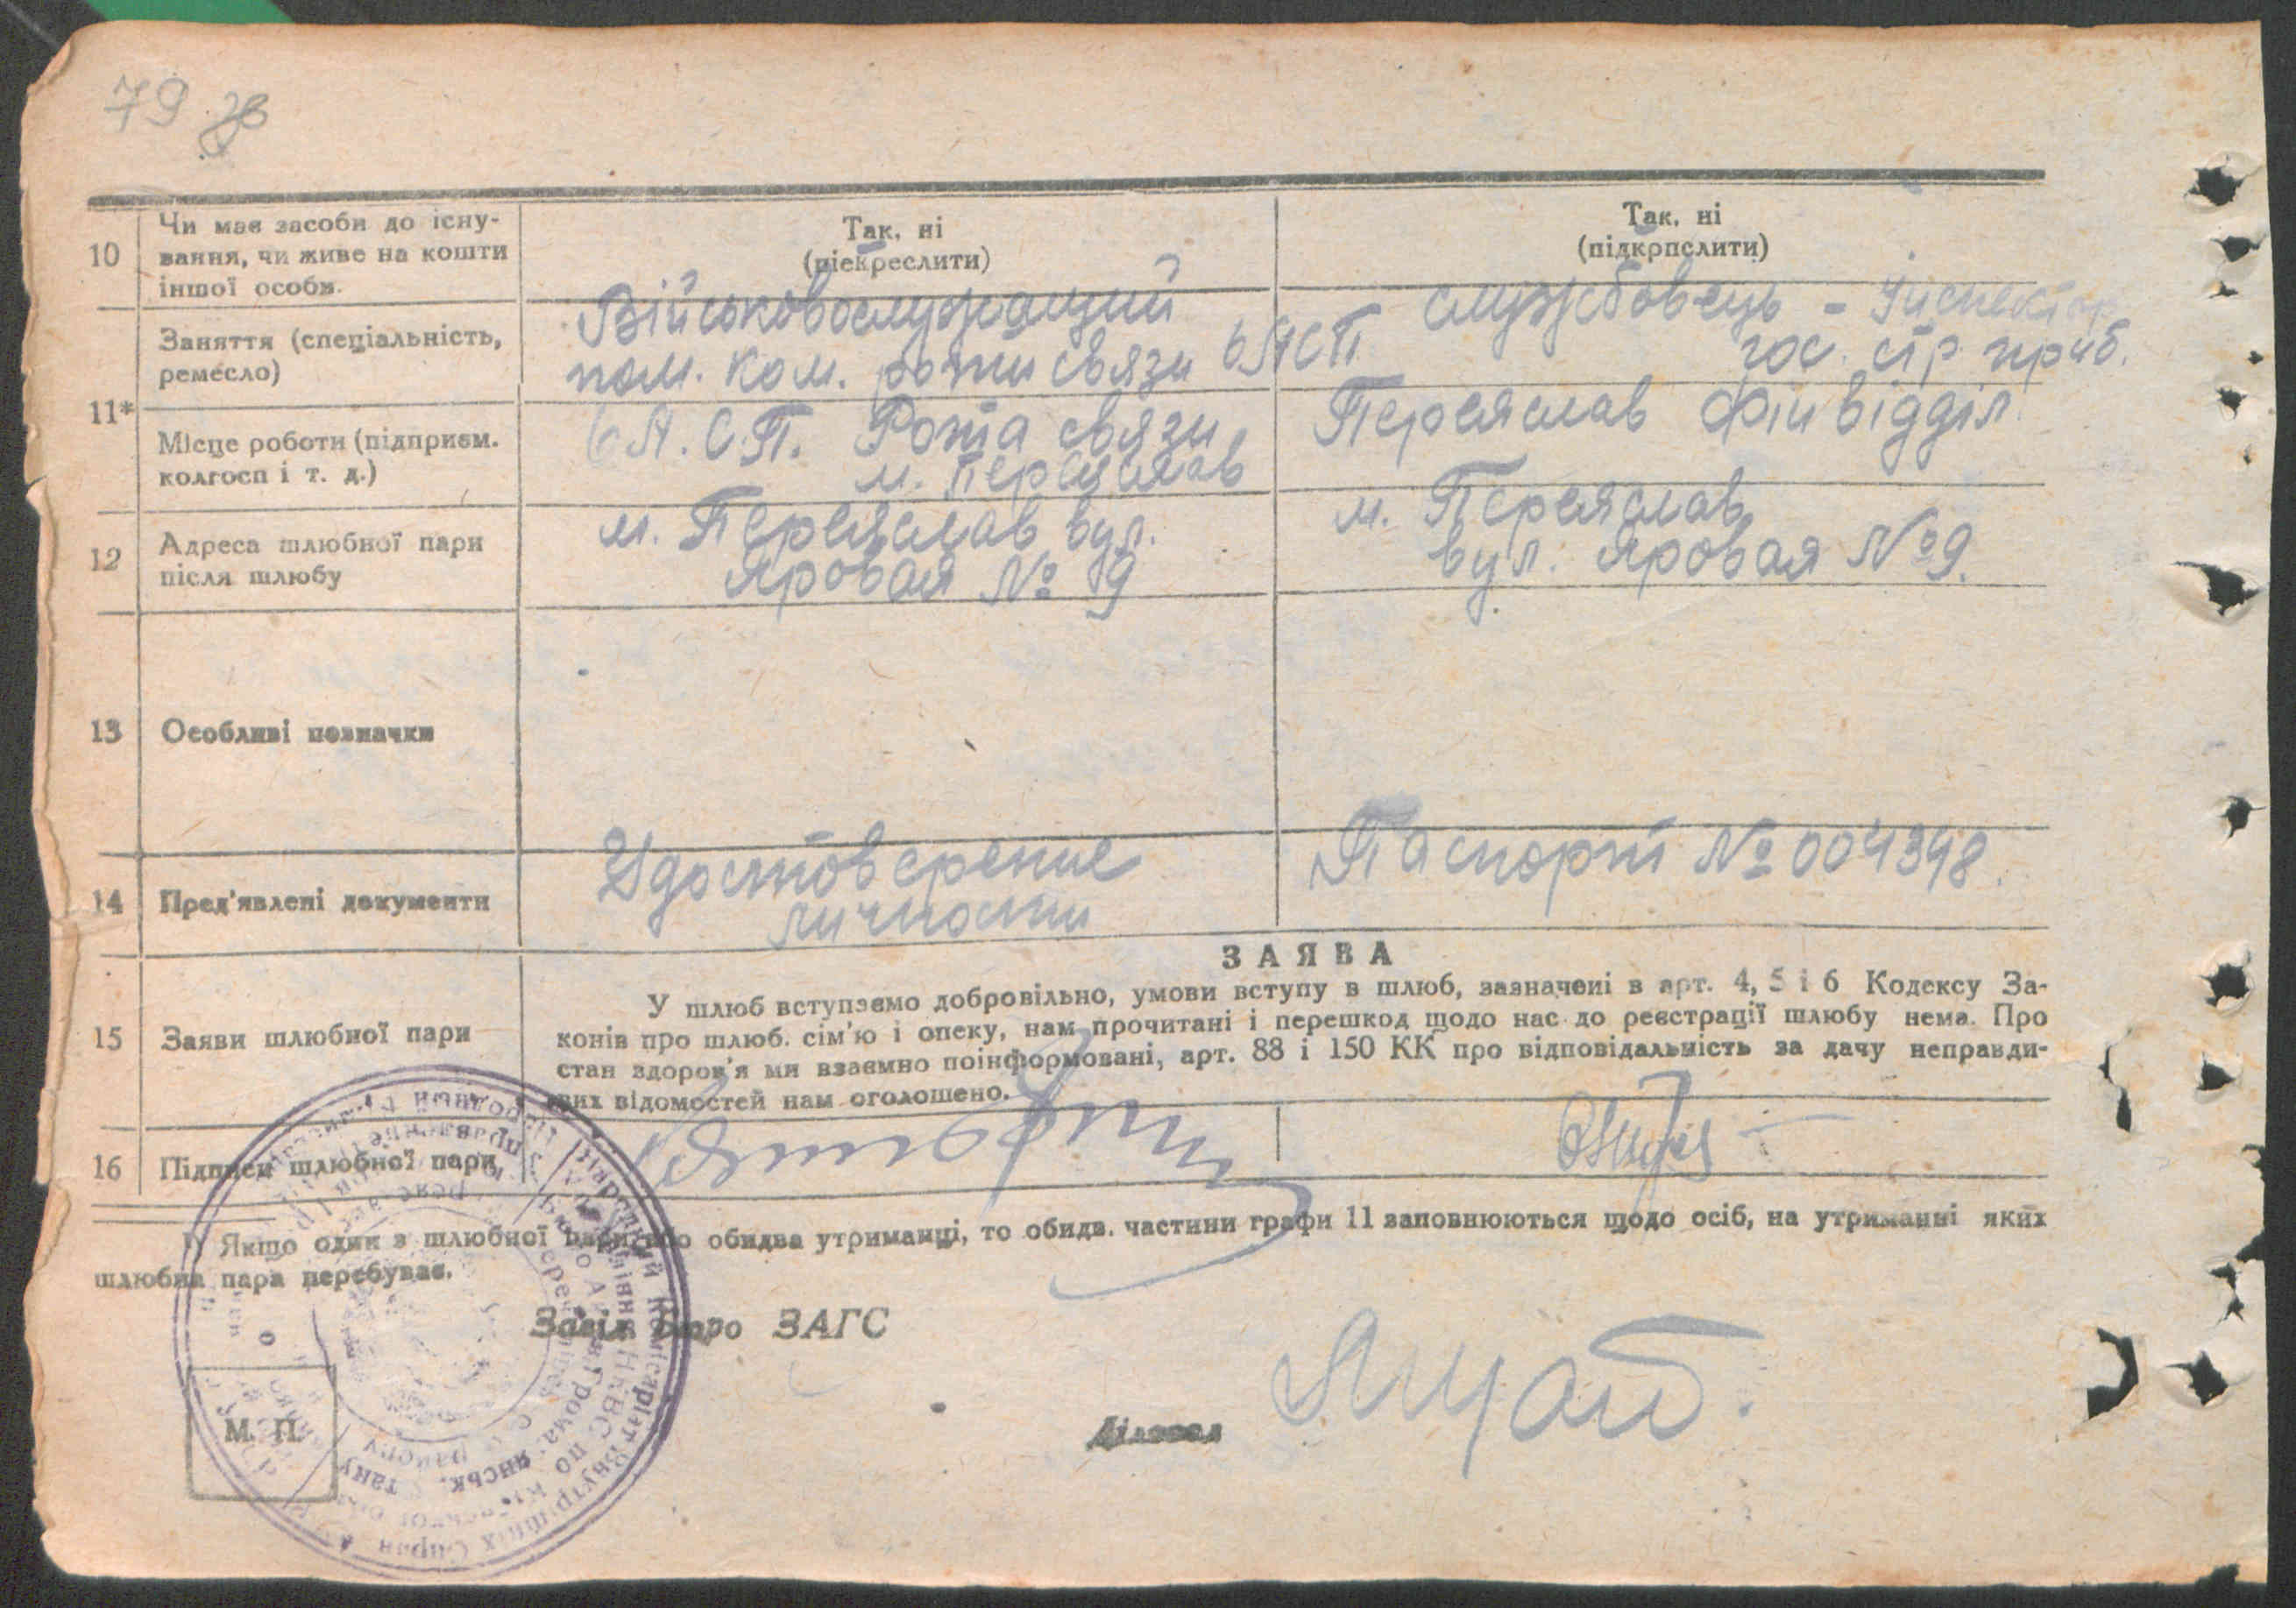 79 зв
10
Чи має засоби до існу-
вання, чи живе на кошти
іншої особи.
Так, ні
(піекреслити)
Так, ні
(підкрпслити)
11*
Заняття (спеціальність,
ремесло)
Військовослужащий
пом. ком. роти связи 6 А С П
службовець - Інспектор
гос. стр.
Місце роботи (підприєм.
колгосп і т. д.)
6 А. С. П. Рота связи
м. Переяслав
Переяслав Фінвідділ
12
Адреса шлюбної пари
після шлюбу
м. Переяслав вул.
Яровая № 9
м. Переяслав
вул. Яровая № 9.
13
Особливі позначки
14
Пред'явлені документи
Удостоверение
личности
Паспорт № 004398.
ЗАЯВА
15
Заяви шлюбної пари
У шлюб вступаємо добровільно, умови вступу в шлюб, зазначені в арт. 4, 5 і 6 Кодексу За-
конів про шлюб. сім'ю і опеку, нам прочитані і перешкод щодо нас до реєстрації шлюбу нема. Про
стан здоров'я ми взаємно поінформовані, арт. 88 і 150 КК про відповідальність за дачу неправди-
вих відомостей нам оголошено.
16
Підписи шлюбної пари
Якщо один з шлюбної пари або обидва утриманці, то обидв. частини графи 11 заповнюються щодо осіб, на утриманні яких
шлюбна пара перебуває.
Завід Бюро ЗАГС
М. П.
Діловод
Народний Комісаріат Внутрішніх Справ